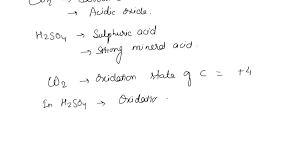 → Acidic oxide.
H2SO4 → Sulphuric acid
→ Strong mineral acid.
CO2 → Oxidation state of C = +4
In H2SO4 → Oxidatio